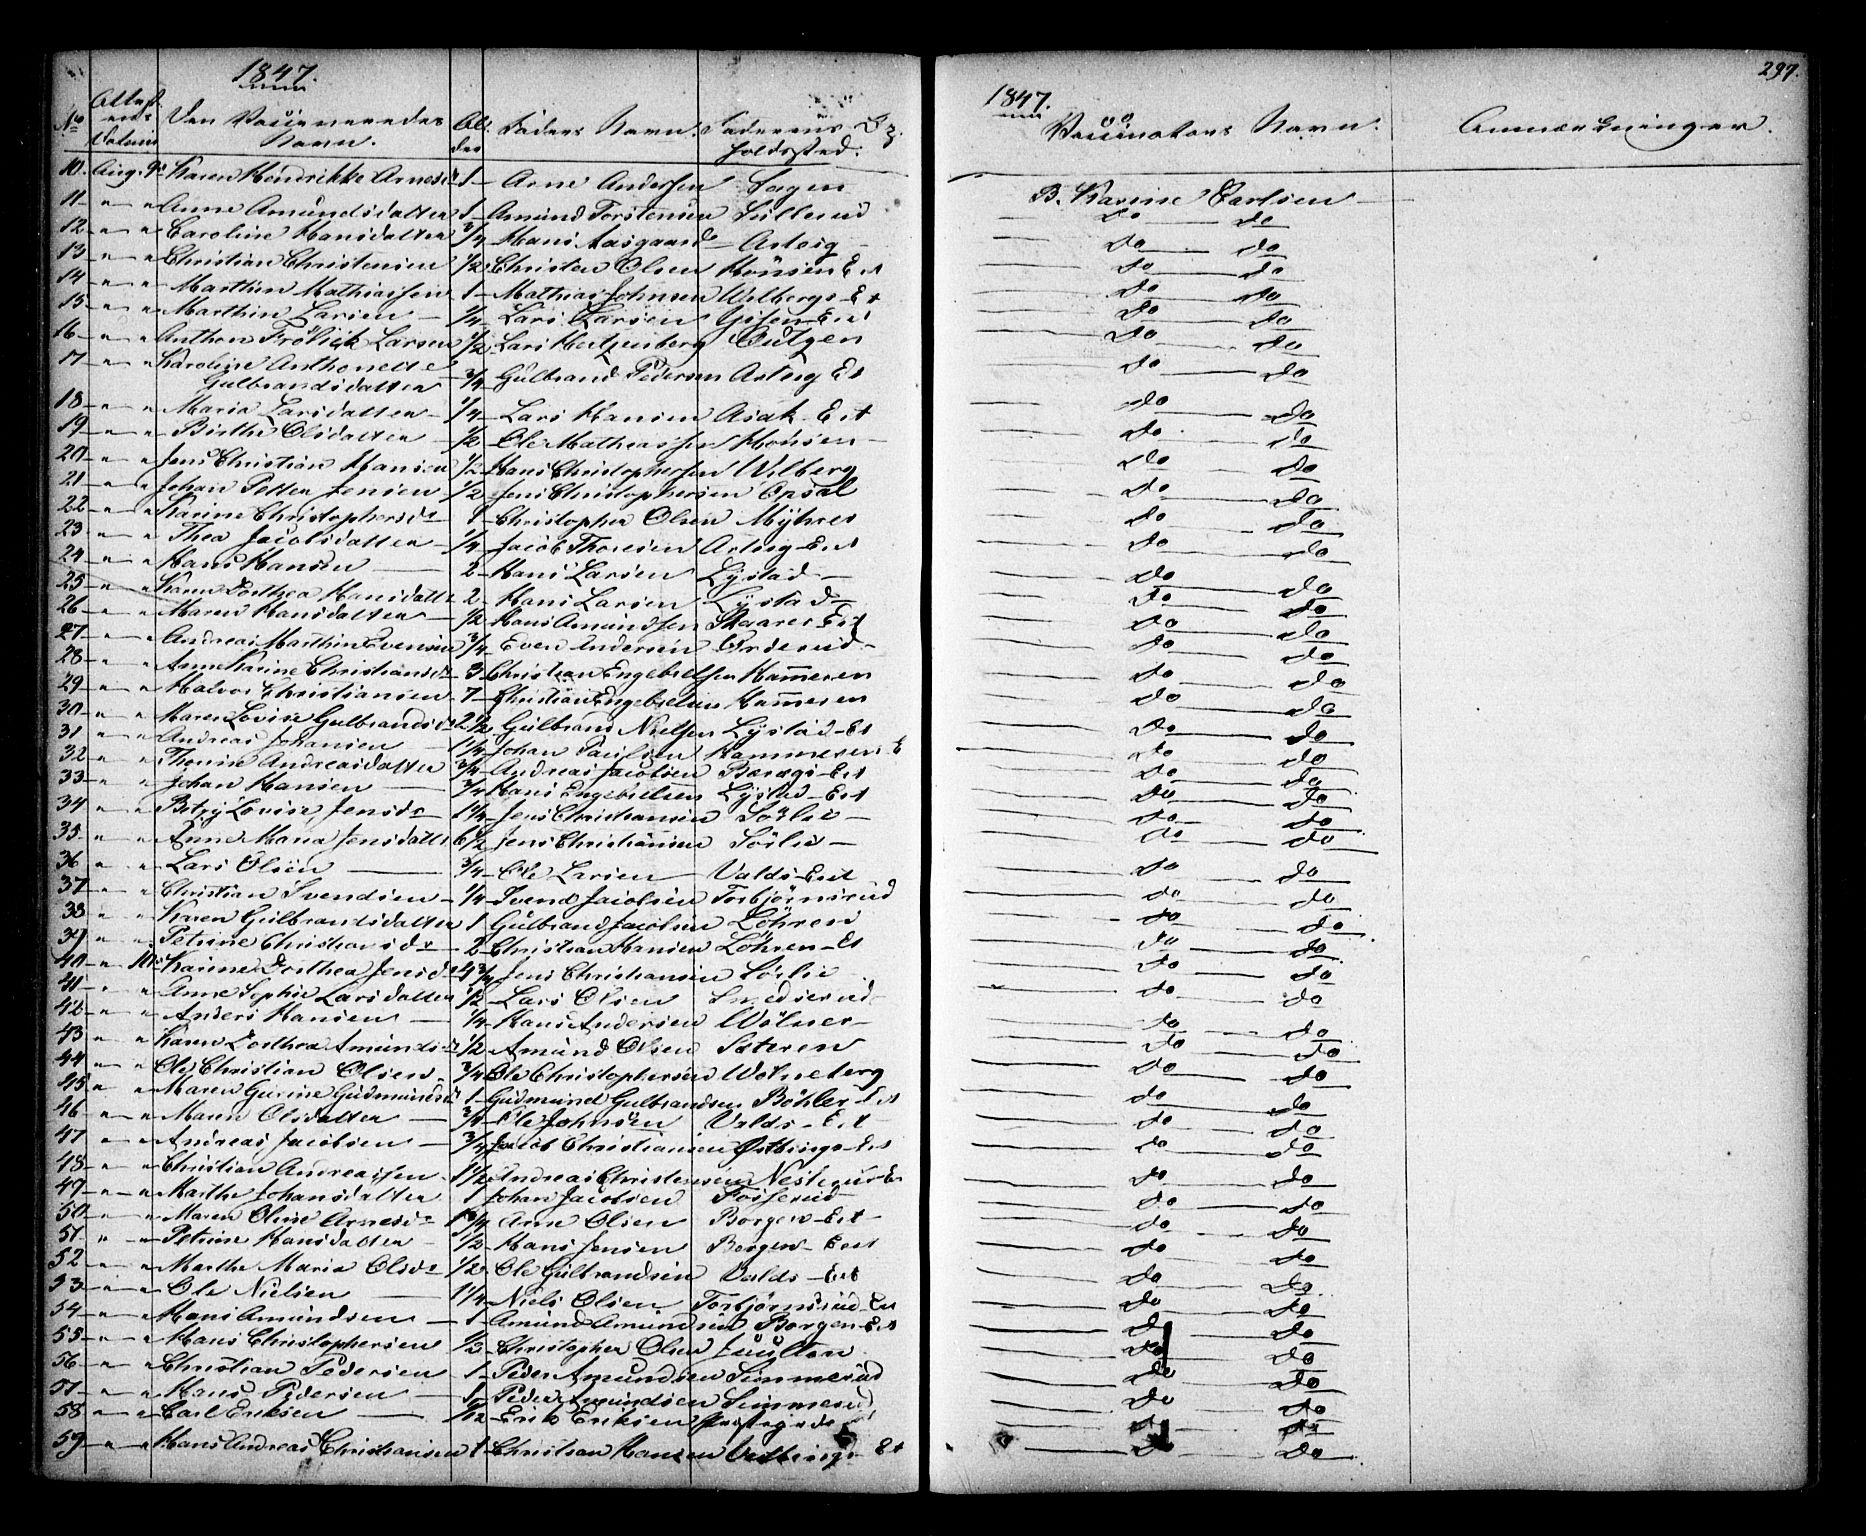 1847.
No Attest- ens Datum Den Vaccineredes Navn. Al- der Faders Navn. Faderens Op- holdssted.
10. Aug. 9 Karen Hendrikke Arnesd 1 Arne Andersen Hagen
11 " " Anne Amundsdatter 1 Amund Torstensen Sullerud
12 " " Caroline Hansdatter 3/4 Hans Aasgaard Asteig
13 " " Christian Christensen 1/2 Christen Olsen Honsen Eiet
14 " " Marthin Mathiassen 1 Mathias Johnsen Wilbergs Et
15 " " Marthin Larsen 1/4 Lars Larsen Eiet
16 " " Anthon Frölich Larsen 1/2 Lars Hertzenberg
17 " " Karoline Anthonette
Gulbrandsdatter 3/4 Gulbrand Pedersen Asteig Et
18 " " Maria Larsdatter 1/4 Lars Hansen Asak Eiet
19 " " Birthe Olsdatter 1/2 Ole Mathiassen Honsen
20 " " Jens Christian Hansen 1/2 Hans Christophersen Wilberg
21 " " Johan Petter Jensen 1/2 Jens Christophersen Opsal
22 " " Karine Christophersdr 1 Christopher Olsen Myhrer
23 " " Thea Jacobsdatter 1/4 Jacob Thoresen Asteig Eiet
24 " " Hans Hansen 2 Hans Larsen Lystad
25 " " Karen Dorthea Hansdatter 2 Hans Larsen Lystad
26 " " Maren Hansdatter 1/2 Hans Amundsen Skaarer Eiet
27 " " Andreas Marthin Evensen 3/4 Even Andersen Orderud
28 " " Anne Karine Christiansdr 3 Christian Engebretsen Hammeren
29 " " Halvor Christiansen 7 Christian Engebretsen Hammeren
30 " " Maren Lovise Gulbrandsdr 2 1/2 Gulbrand Nielsen Lystad Et
31 " " Andreas Johansen 1 1/4 Johan Paulsen Hammeren E
32 " " Thorine Andreasdatter 3/4 Andreas Jacobsen Eiet
33 " " Johan Hansen 3/4 Hans Engebretsen Lystad Eiet
34 " " Betzy Lovise Jensdr 1 1/4 Jens Christiansen Sörlie
35 " " Anne Maria Jensdatter 6 1/2 Jens Christiansen Sörlie
36 " " Lars Olsen 3/4 Ole Larsen Valds Eiet
37 " " Christian Svendsen 1/4 Svend Jacobsen Torbjörnsrud
38 " " Karen Gulbrandsdatter 1 Gulbrand Jacobsen Löhren
39 " " Petrine Christiansdr 2 Christian Hansen Löhren Et
40 " 10 Karine Dorthea Jensdr 4 3/4 Jens Christiansen Sörlie
41 " " Anne Sophie Larsdatter 1/2 Lars Olsen Smedsrud
42 " " Anders Hansen 1/4 Hans Andersen Wölner
43 " " Karen Dorthea Amundsdr 1/2 Amund Olsen Sæteren
44 " " Ole Christian Olsen 3/4 Ole Christophersen Wolneberg
45 " " Maren Gurine Gudmundsdr 1 Gudmund Gulbrandsen Böhler Eiet
46 " " Maren Olsdatter 3/4 Ole Johnsen Valds Eiet
47 " " Andreas Jacobsen 3/4 Jacob Christiansen Østbinge Eiet
48 " " Christian Andreassen 1 1/2 Andreas Christensen Et
49 " " Marthe Johansdatter 1 Johan Jacobsen Fosserud
50 " " Maren Oline Arnesdr 1 3/4 Arne Olsen Borgen Eiet
51 " " Petrine Hansdatter 1/2 Hans Jensen Borgen Eiet
52 " " Marthe Maria Olsdr 1/2 Ole Gulbrandsen Valds Eiet
53 " " Ole Nielsen 1 1/4 Niels Olsen Torbjörnsrud Eiet
54 " " Hans Amundsen 1 Amund Amundsen Borgen Eiet
55 " " Hans Christophersen 1/2 Christopher Olsen Juulton
56 " " Christian Pedersen 1 Peder Amundsen Simmerud
57 " " Hans Pedersen Peder Amundsen Simmerud
58 " " Carl Eriksen 1/12 Erik Eriksen Præstegrde
59 " " Hans Andreas Christiansen 1 Christian Hansen Østbinge Et
297.
1847.
Vaccinateurs Navn. Anmærkninger.
B. Karine Carlsen
do do
do do
do do
do do
do do
do do
do do
do do
do do
do do
do do
do do
do do
do do
do do
do do
do do
do do
do do
do do
do do
do do
do do
do do
do do
do do
do do
do do
do do
do do
do do
do do
do do
do do
do do
do do
do do
do do
do do
do do
do do
do do
do do
do do
do do
do do
do do
do do
do do